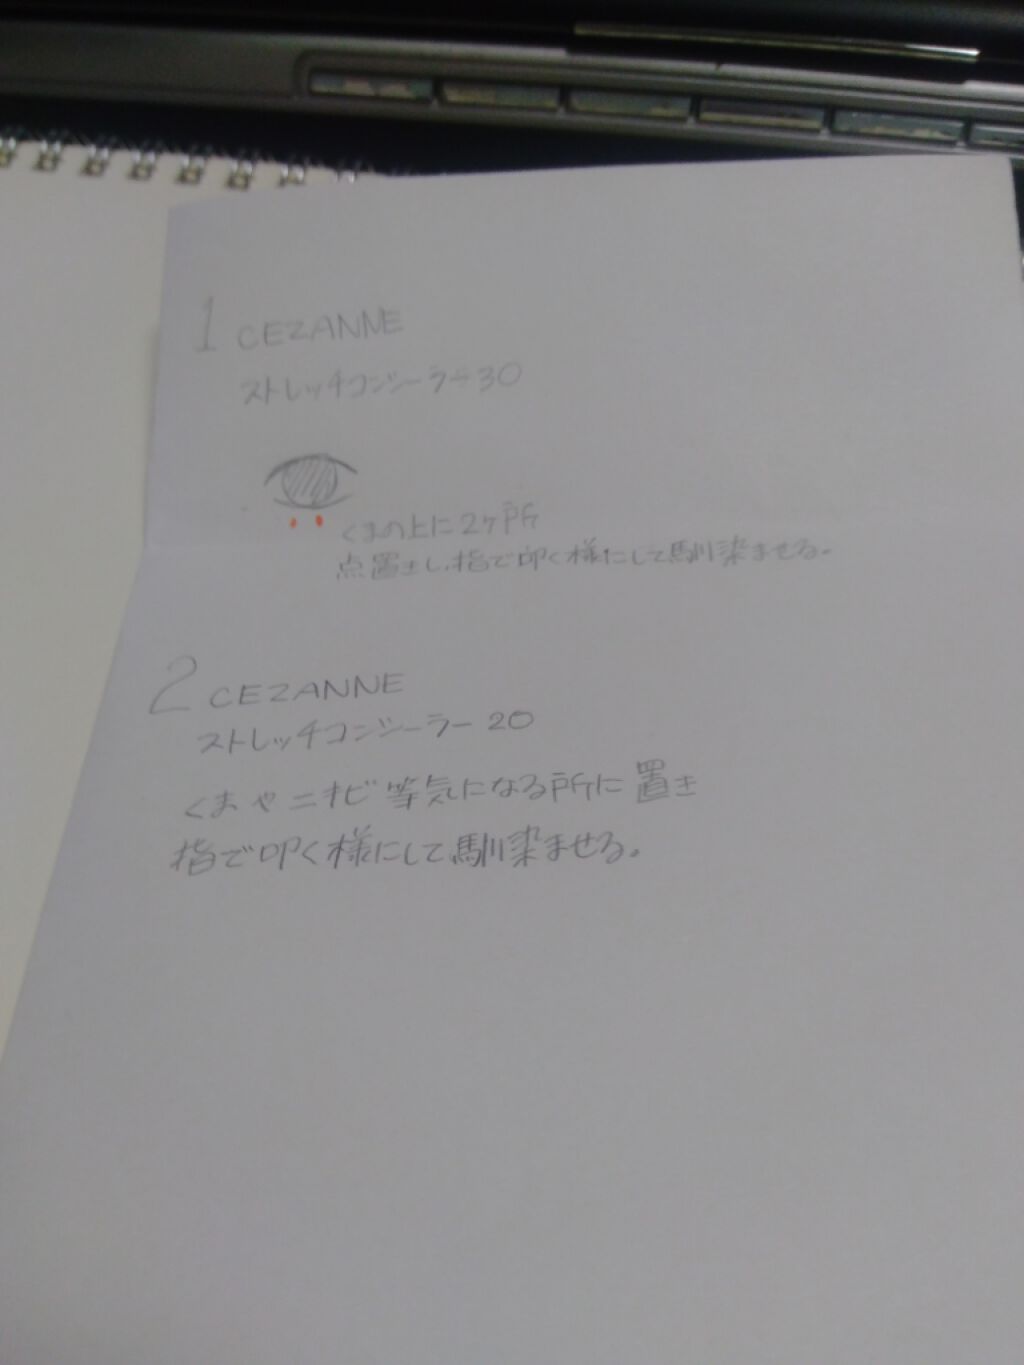 1 CEZANNE
ストレッチコンシーラー30
くまの上に2ヶ所
点置きし、指で叩く様にして馴染ませる。
2 CEZANNE
ストレッチコンシーラー 20
くまやニキビ等気になる所に置き
指で叩く様にして馴染ませる。